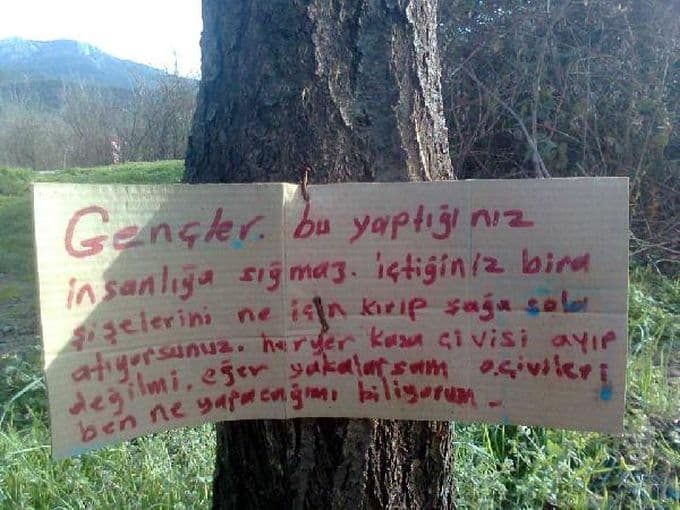 Gençler. bu yaptığınız
insanlığa sığmaz. içtiğiniz bira
şişelerini ne için kırıp sağa sola
atıyorsunuz. heryer kaza çivisi ayıp
değilmi. eğer yakalarsam o çivileri
ben ne yapacağımı biliyorum.